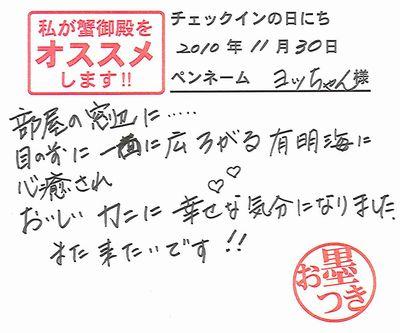 私が蟹御殿を
オススメ
します!!
チェックインの日にち
2010年 11月 30日
ペンネーム ヨッちゃん 様
部屋の窓辺に……
目の前に一面に広ろがる有明海に
心癒され
おいしいカニに幸せな気分になりました
♡♡
また来たいです!!
お墨つき